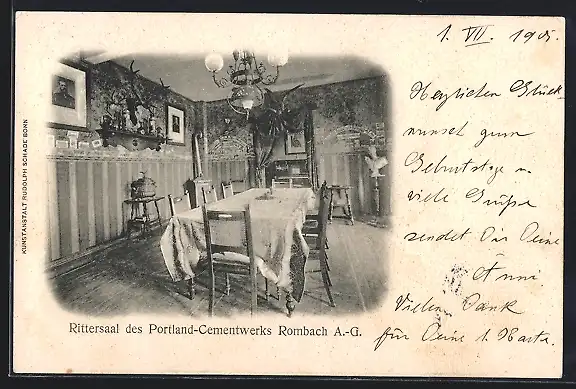 1. VII. 1905.
Herzlichen Glück-
wunsch zum
Geburtstage u.
viele Grüße
sendet Dir Deine
Anni
Vielen Dank
für Deine 1. Karte.
KUNSTANSTALT RUDOLPH SCHADE BONN
Rittersaal des Portland-Cementwerks Rombach A.-G.